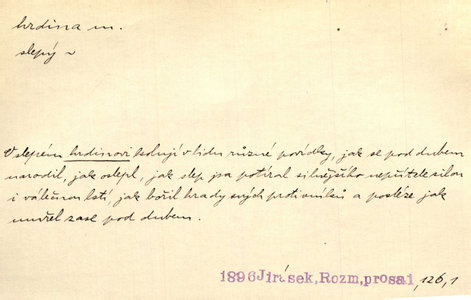 hrdina m.
slepý ~
O slepém hrdinovi kolují v lidu různé povídky, jak se pod dubem
narodil, jak oslepl, jak slep jsa potíral silnějšího nepřítele silou
i válečnou lstí, jak bořil hrady svých protivníků a posléze jak
umřel zase pod dubem.
1896 Jirásek, Rozm, prosa 1, 126,1